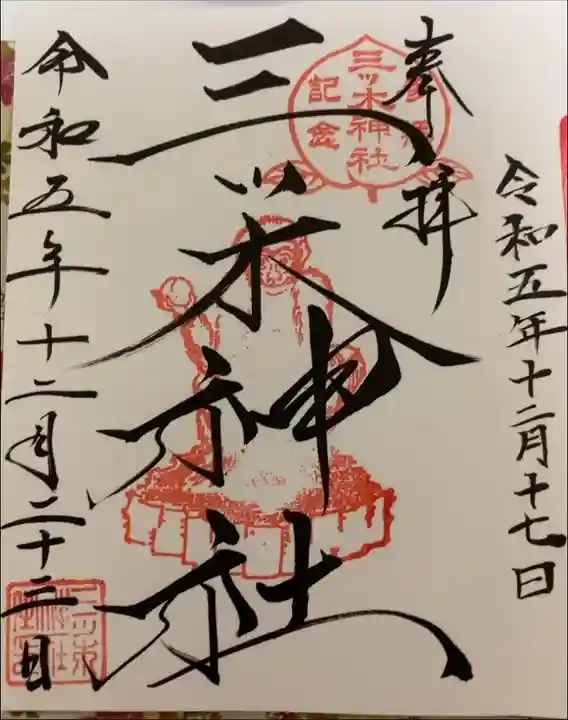 令和五年十二月十七日
奉拝
三ッ木神社
三ッ木神社
記念
令和五年十二月二十三日